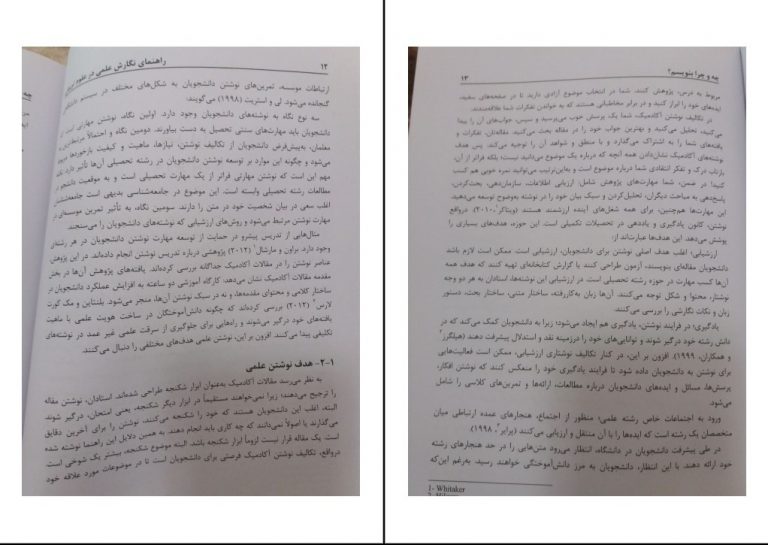 ۱۲ راهنمای نگارش علمی در علوم
ارتباطات موسسه، تمرین‌های نوشتن دانشجویان به شکل‌های مختلف در سیستم
گنجانده می‌شود. لی و استریت (۱۹۹۸) می‌گویند:
سه نوع نگاه به نوشته‌های دانشجویان وجود دارد. اولین نگاه، نوشتن مهارتی است
دانشجویان باید مهارت‌های سنتی تحصیل به دست بیاورند. دومین نگاه و احتمالاً
معلمان، به‌پیش‌فرض دانشجویان از تکالیف نوشتن، نیازها، ماهیت و کیفیت بازخوردها مربوط
می‌شود و چگونه این موارد بر توسعه نوشتن دانشجویان در رشته تحصیلی آن‌ها تأثیر دارد.
مهم این است که نوشتن مهارتی فراتر از یک مهارت تحصیلی است و به موقعیت دانشجو
مطالعات رشته تحصیلی وابسته است. این موضوع در جامعه‌شناسی بدیهی است جامعه‌شناسان
اغلب سعی در بیان شخصیت خود در متن را دارند. سومین نگاه، به تأثیر تمرین موسسه‌ای
مهارت نوشتن مرتبط می‌شود و روش‌های ارزشیابی که نوشته‌های دانشجویان را می‌سنجند
مثال‌هایی از تدریس پیشرو در حمایت از توسعه مهارت نوشتن دانشجویان در هر رشته‌ای
وجود دارد. براون و مارشال۱ (۲۰۱۲) پژوهشی درباره تدریس نوشتن انجام داده‌اند. در این پژوهش
عناصر نوشتن را در مقالات آکادمیک جداگانه بررسی کرده‌اند. یافته‌های پژوهش آن‌ها در بخش
مقدمه مقالات آکادمیک نشان می‌دهد، کارگاه آموزشی دو ساعته به افزایش عملکرد دانشجویان در
ساختار کلامی و محتوای مقدمه‌ها، و نه در سبک نوشتن آن‌ها، منجر می‌شود. یلنتاین و مک کورت
لارس۲ (۲۰۱۲) بررسی کرده‌اند که چگونه دانش‌آموختگان در ساخت هویت علمی با ماهیت
یافته‌های خود درگیر می‌شوند و راه‌هایی برای جلوگیری از سرقت علمی غیر عمد در نوشته‌های
تکلیفی پیدا می‌کنند. افزون بر این، نوشتن علمی هدف‌های مختلفی را دنبال می‌کنند.
۱-۲- هدف نوشتن علمی
به نظر می‌رسد مقالات آکادمیک به‌عنوان ابزار شکنجه طراحی شده‌اند. استادان، نوشتن مقاله
را ترجیح می‌دهند؛ زیرا نمی‌خواهند مستقیماً در ابزار دیگر شکنجه، یعنی امتحان، درگیر شوند.
البته، اغلب این دانشجویان هستند که خود را شکنجه می‌کنند، نوشتن را برای آخرین دقایق
می‌گذارند یا اصولاً نمی‌دانند که چه کاری باید انجام دهند. به همین دلایل این راهنما نوشته شده
است. یک مقاله قرار نیست لزوماً ابزار شکنجه باشد. البته موضوع شکنجه، بیشتر یک شوخی است.
درواقع، تکالیف نوشتن آکادمیک فرصتی برای دانشجویان است تا در موضوعات مورد علاقه خود
چه و چرا بنویسم؟ ۱۳
مربوط به درس، پژوهش کنند. شما در انتخاب موضوع آزادی دارید تا در صفحه‌های سفید،
ایده‌های خود را ابراز کنید و در برابر مخاطبانی هستند که به خواندن تفکرات شما علاقه‌مندند.
در تکالیف نوشتن آکادمیک، شما یک پرسش خوب می‌پرسید و سپس، جواب‌های آن را پیدا
می‌کنید، تحلیل می‌کنید و بهترین جواب خود را در مقاله بحث می‌کنید. مقاله‌تان، تفکرات و
یافته‌های شما را به اشتراک می‌گذارد و با منطق و شواهد آن را توجیه می‌کند. پس هدف
نوشته‌های آکادمیک نشان‌دادن همه آنچه که درباره یک موضوع می‌دانید نیست؛ بلکه فراتر از آن،
بازتاب درک و تفکر انتقادی شما درباره موضوع است و به‌این‌ترتیب می‌توانید نمره خوبی هم کسب
کنید! در ضمن، شما مهارت‌های پژوهش شامل: ارزیابی اطلاعات، سازمان‌دهی، بحث‌کردن،
پاسخ‌دهی به مباحث دیگران، تحلیل‌کردن و سبک بیان خود را در نوشته به‌وضوح توسعه می‌دهید.
این مهارت‌ها هم‌چنین، برای همه شغل‌های آینده ارزشمند هستند (ویتاکر۱، ۲۰۱۰). درواقع
نوشتن، کانون یادگیری و یاددهی در تحصیلات تکمیلی است. این حوزه، هدف‌های بسیاری را
پوشش می‌دهد. این هدف‌ها عبارت‌اند از:
ارزشیابی: اغلب هدف اصلی نوشتن برای دانشجویان، ارزشیابی است. ممکن است لازم باشد
دانشجویان مقاله‌ای بنویسند، آزمون طراحی کنند یا گزارش کتابخانه‌ای تهیه کنند که هدف همه
آن‌ها کسب مهارت در حوزه رشته تحصیلی است. در ارزشیابی این نوشته‌ها، استادان به هر دو وجه
نوشتار، محتوا و شکل توجه می‌کنند. آن‌ها زبان به‌کاررفته، ساختار متنی، ساختار بحث، دستور
زبان و نکات نگارشی را بررسی می‌کنند.
یادگیری؛ در فرایند نوشتن، یادگیری هم ایجاد می‌شود؛ زیرا به دانشجویان کمک می‌کند که در
دانش رشته خود درگیر شوند و توانایی‌های خود را درزمینه نقد و استدلال پیشرفت دهند (هیلگرز۲
و همکاران، ۱۹۹۹). افزون بر این، در کنار تکالیف نوشتاری ارزشیابی، ممکن است فعالیت‌هایی
برای نوشتن به دانشجویان داده شود تا فرایند یادگیری خود را منعکس کنند که نوشتن افکار،
پرسش‌ها، مسائل و ایده‌های دانشجویان درباره مطالعات، ارائه‌ها و تمرین‌های کلاسی را شامل
می‌شود.
ورود به اجتماعات خاص رشته علمی؛ منظور از اجتماع، هنجارهای عمده ارتباطی میان
متخصصان یک رشته است که ایده‌ها را با آن منتقل و ارزیابی می‌کنند (پرایر۳، ۱۹۹۸).
در طی پیشرفت دانشجویان در دانشگاه، انتظار می‌رود متن‌هایی را در حد هنجارهای رشته
خود ارائه دهند. با این انتظار، دانشجویان به مرز دانش‌آموختگی خواهند رسید. به‌رغم این‌که
1- Whitaker